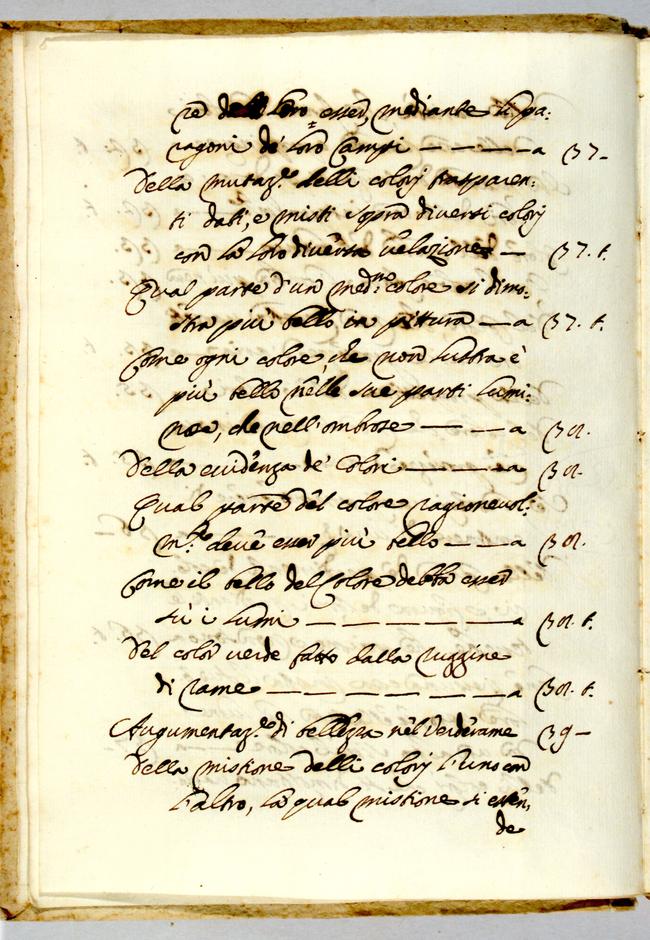 re dell loro esser, mediante li pa:
ragoni de' loro Campi — — — — a 37 –
Della mutaz.ne delli colorj trasparen:
ti dati, e misti sopra diversi colorj
con la loro diversa velazione —  37. t.
Qual parte d'un med.mo colore si dimo:
stra più bello in pittura — a 37. t.
Come ogni colore, che non lustra è
più bello nelle sue parti lumi:
nose, che nell'ombrose — — — a 38.
Della evidenza de' Colori — — — — a 38.
Qual parte del colore ragionevol:
m.te deve esser più bello — — a 38.
Come il bello del Colore debba esser
sù i lumi — — — — — — — a 38. t.
Del color verde fatto dalla ruggine
di rame — — — — — — — a 38. t.
Augumentaz.ne di bellezza nel Verderame 39 –
Della mistione delli colorj l'uno con
l'altro, la qual mistione si esten:
de